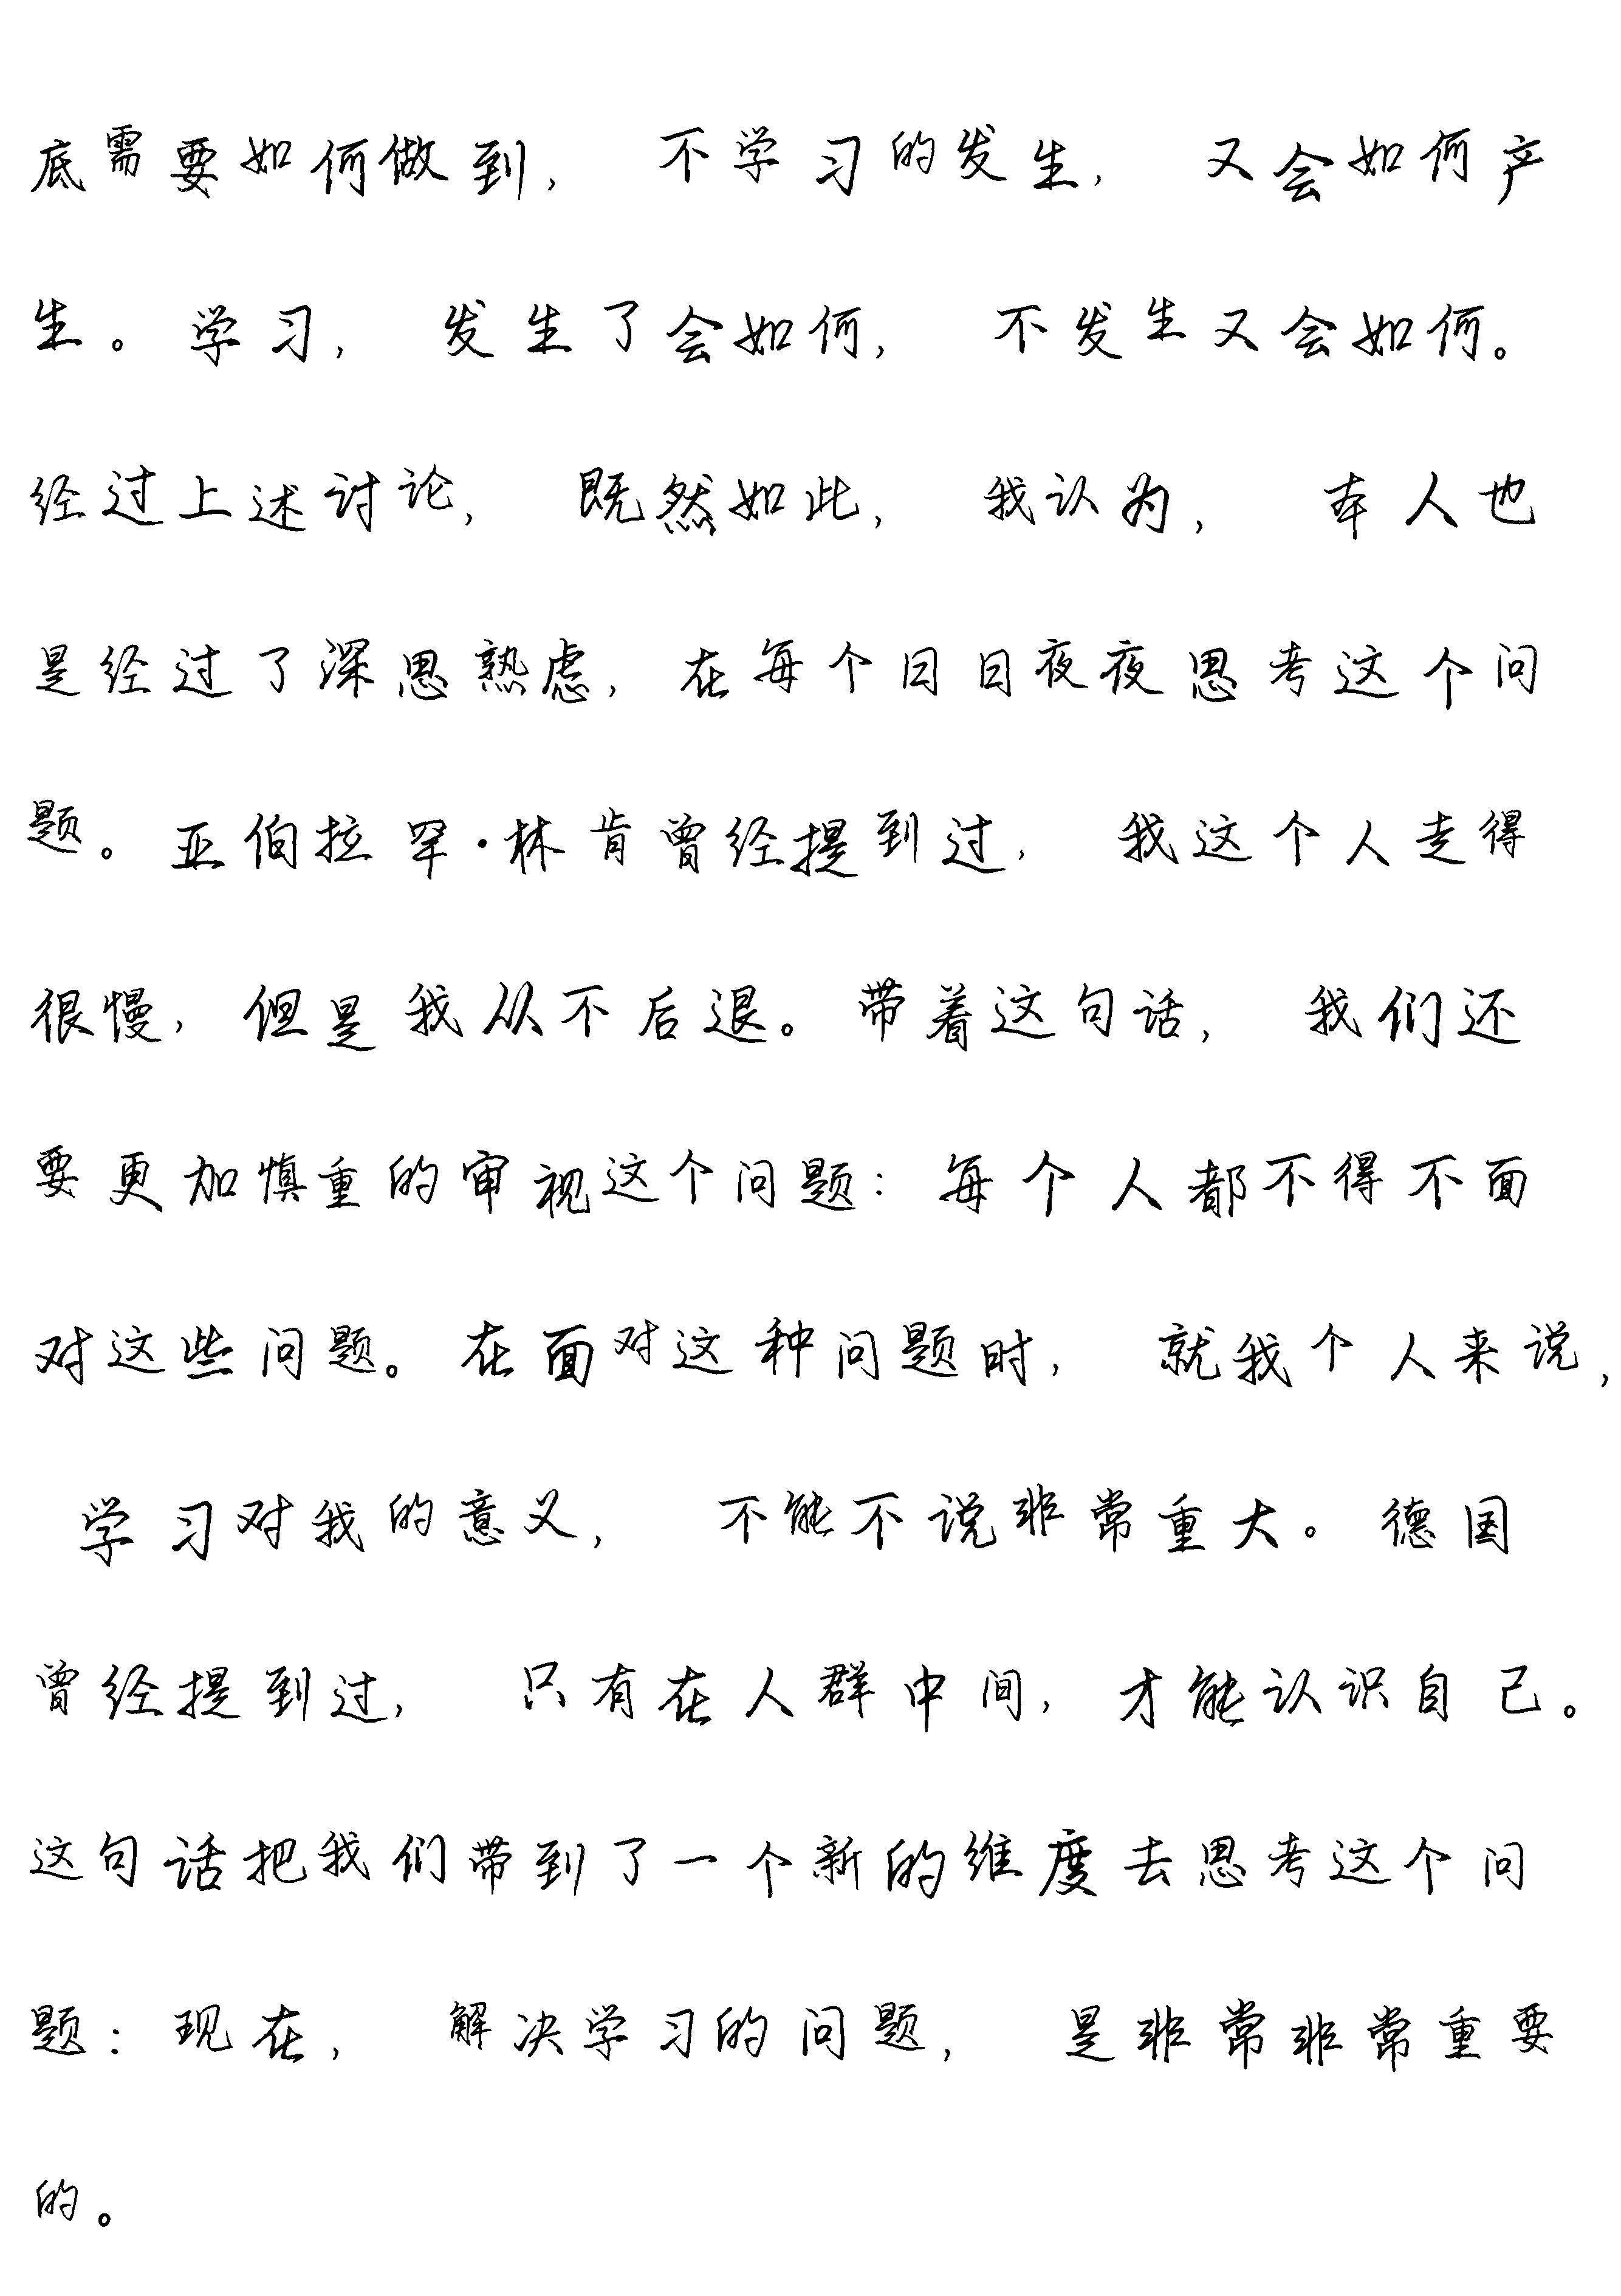 底需要如何做到， 不学习的发生， 又会如何产
生。学习， 发生了会如何， 不发生又会如何。
经过上述讨论， 既然如此， 我认为， 本人也
是经过了深思熟虑，在每个日日夜夜思考这个问
题。亚伯拉罕·林肯曾经提到过， 我这个人走得
很慢，但是我从不后退。带着这句话， 我们还
要更加慎重的审视这个问题：每个人都不得不面
对这些问题。在面对这种问题时， 就我个人来说，
学习对我的意义， 不能不说非常重大。德国
曾经提到过， 只有在人群中间，才能认识自己。
这句话把我们带到了一个新的维度去思考这个问
题：现在， 解决学习的问题， 是非常非常重要
的。